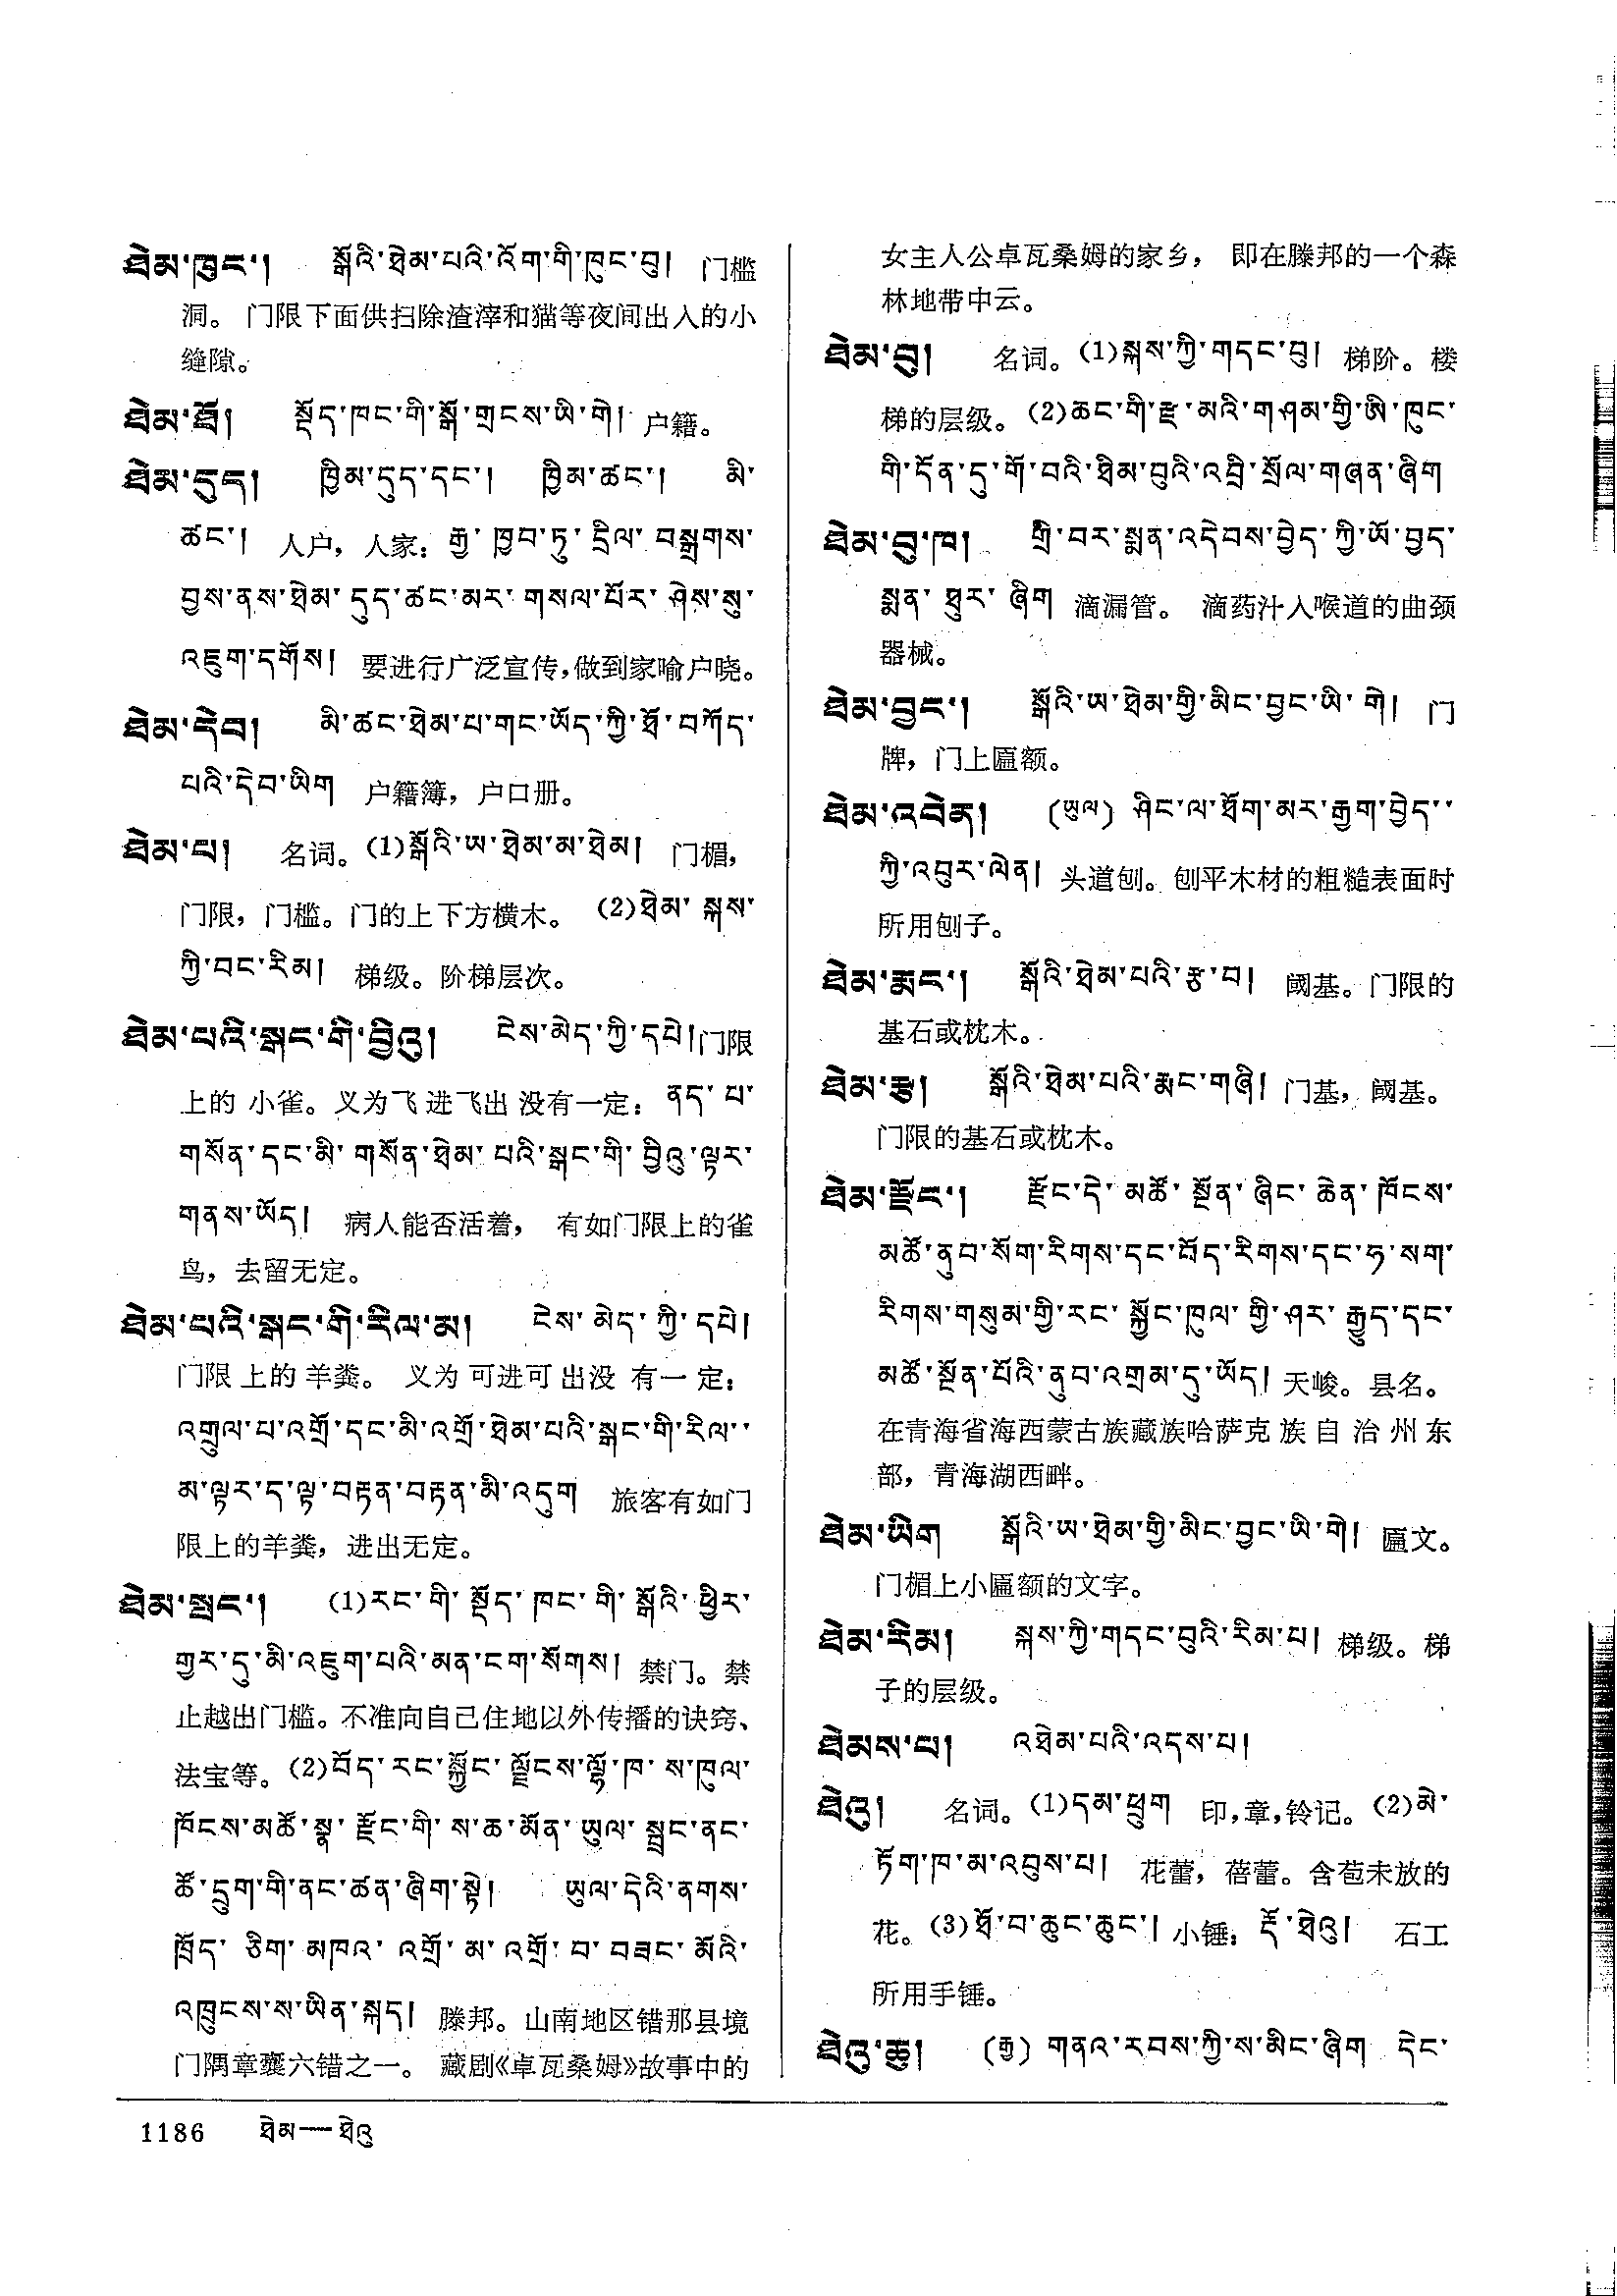 ཐེམ་ཁུང་། སྒོའི་ཐེམ་པའི་འོག་གི་ཁུང་བུ། 门槛
洞。门限下面供扫除渣滓和猫等夜间出入的小
缝隙。
ཐེམ་ཐོ། སྡོད་ཁང་གི་སྒོ་གྲངས་ཡི་གེ། 户籍。
ཐེམ་དུད། ཁྱིམ་དུད་དང་། ཁྱིམ་ཚང་། མི་
ཚང་། 人户，人家：རྒྱ་ཁྱབ་ཏུ་དྲིལ་བསྒྲགས་
བྱས་ནས་ཐེམ་དུད་ཚང་མར་གསལ་པོར་ཤེས་སུ་
འཇུག་དགོས། 要进行广泛宣传，做到家喻户晓。
ཐེམ་དེབ། མི་ཚང་ཐེམ་པ་གང་ཡོད་ཀྱི་ཐོ་བཀོད་
པའི་དེབ་ཡིག 户籍簿，户口册。
ཐེམ་པ། 名词。(1)སྒོའི་ཡ་ཐེམ་མ་ཐེམ། 门楣，
门限，门槛。门的上下方横木。(2)ཐེམ་སྐས་
ཀྱི་བང་རིམ། 梯级。阶梯层次。
ཐེམ་པའི་སྒང་གི་བྱིའུ། ངེས་མེད་ཀྱི་དཔེ། 门限
上的小雀。义为飞进飞出没有一定：ནད་པ་
གསོན་དང་མི་གསོན་ཐེམ་པའི་སྒང་གི་བྱིའུ་ལྟར་
གནས་ཡོད། 病人能否活着，有如门限上的雀
鸟，去留无定。
ཐེམ་པའི་སྒང་གི་རིལ་མ། ངེས་མེད་ཀྱི་དཔེ།
门限上的羊粪。义为可进可出没有一定：
འགྲུལ་པ་འགྲོ་དང་མི་འགྲོ་ཐེམ་པའི་སྒང་གི་རིལ་
མ་ལྟར་ད་ལྟ་བརྟན་བརྟན་མི་འདུག 旅客有如门
限上的羊粪，进出无定。
ཐེམ་སྤང་། (1)རང་གི་སྡོད་ཁང་གི་སྒོའི་ཕྱིར་
གྱར་དུ་མི་འཇུག་པའི་མན་ངག་སོགས། 禁门。禁
止越出门槛。不准向自己住地以外传播的诀窍、
法宝等。(2)བོད་རང་སྐྱོང་ལྗོངས་ལྷོ་ཁ་ས་ཁུལ་
ཁོངས་མཚོ་སྣ་རྫོང་གི་ས་ཆ་མོན་ཡུལ་སྦྲང་ནང་
ཚོ་དྲུག་གི་ནང་ཚན་ཞིག་སྟེ། ཡུལ་དེའི་ནགས་
ཁྲོད་ཅིག་མཁའ་འགྲོ་མ་འགྲོ་བ་བཟང་མོའི་
འཁྲུངས་ས་ཡིན་སྐད། 滕邦。山南地区错那县境
门隅章囊六错之一。藏剧《卓瓦桑姆》故事中的
女主人公卓瓦桑姆的家乡，即在滕邦的一个森
林地带中云。
ཐེམ་བུ། 名词。(1)སྐས་ཀྱི་གདང་བུ། 梯阶。楼
梯的层级。(2)ཆང་གི་རྫ་མའི་གཤམ་གྱི་ཨི་ཁུང་
གི་དོན་དུ་གོ་བའི་ཐིམ་བུའི་འབྲི་སྲོལ་གཞན་ཞིག
ཐེམ་བུ་ཁ། གྲི་བར་སྨན་འདེབས་བྱེད་ཀྱི་ཡོ་བྱད་
སྨན་ཐུར་ཞིག 滴漏管。滴药汁入喉道的曲颈
器械。
ཐེམ་བྱང་། སྒོའི་ཡ་ཐེམ་གྱི་མིང་བྱང་ཡི་གེ། 门
牌，门上匾额。
ཐེམ་འབེན། (ཡུལ) ཤིང་ལ་ཐོག་མར་རྒྱག་བྱེད་
ཀྱི་འབུར་ལེན། 头道刨。刨平木材的粗糙表面时
所用刨子。
ཐེམ་རྨང་། སྒོའི་ཐེམ་པའི་རྩ་བ། 阈基。门限的
基石或枕木。
ཐེམ་རྩ། སྒོའི་ཐེམ་པའི་རྨང་གཞི། 门基，阈基。
门限的基石或枕木。
ཐེམ་རྫོང་། རྫོང་དེ་མཚོ་སྔོན་ཞིང་ཆེན་ཁོངས་
མཚོ་ནུབ་སོག་རིགས་དང་བོད་རིགས་དང་ཧ་སག་
རིགས་གསུམ་གྱི་རང་སྐྱོང་ཁུལ་གྱི་ཤར་རྒྱུད་དང་
མཚོ་སྔོན་པོའི་ནུབ་འགྲམ་དུ་ཡོད། 天峻。县名。
在青海省海西蒙古族藏族哈萨克族自治州东
部，青海湖西畔。
ཐེམ་ཡིག སྒོའི་ཡ་ཐེམ་གྱི་མིང་བྱང་ཡི་གེ། 匾文。
门楣上小匾额的文字。
ཐེམ་རིམ། སྐས་ཀྱི་གདང་བུའི་རིམ་པ། 梯级。梯
子的层级。
ཐེམས་པ། འཐེམ་པའི་འདས་པ།
ཐེའུ། 名词。(1)དམ་ཕྲུག 印，章，铃记。(2)མེ་
ཏོག་ཁ་མ་འབུས་པ། 花蕾，蓓蕾。含苞未放的
花。(3)ཐོ་བ་ཆུང་ཆུང་། 小锤：རྡོ་ཐེའུ། 石工
所用手锤。
ཐེའུ་ཆུ། (རྒྱ) གནའ་རབས་ཀྱི་ས་མིང་ཞིག དེང་
1186 ཐེམ—ཐེའུ